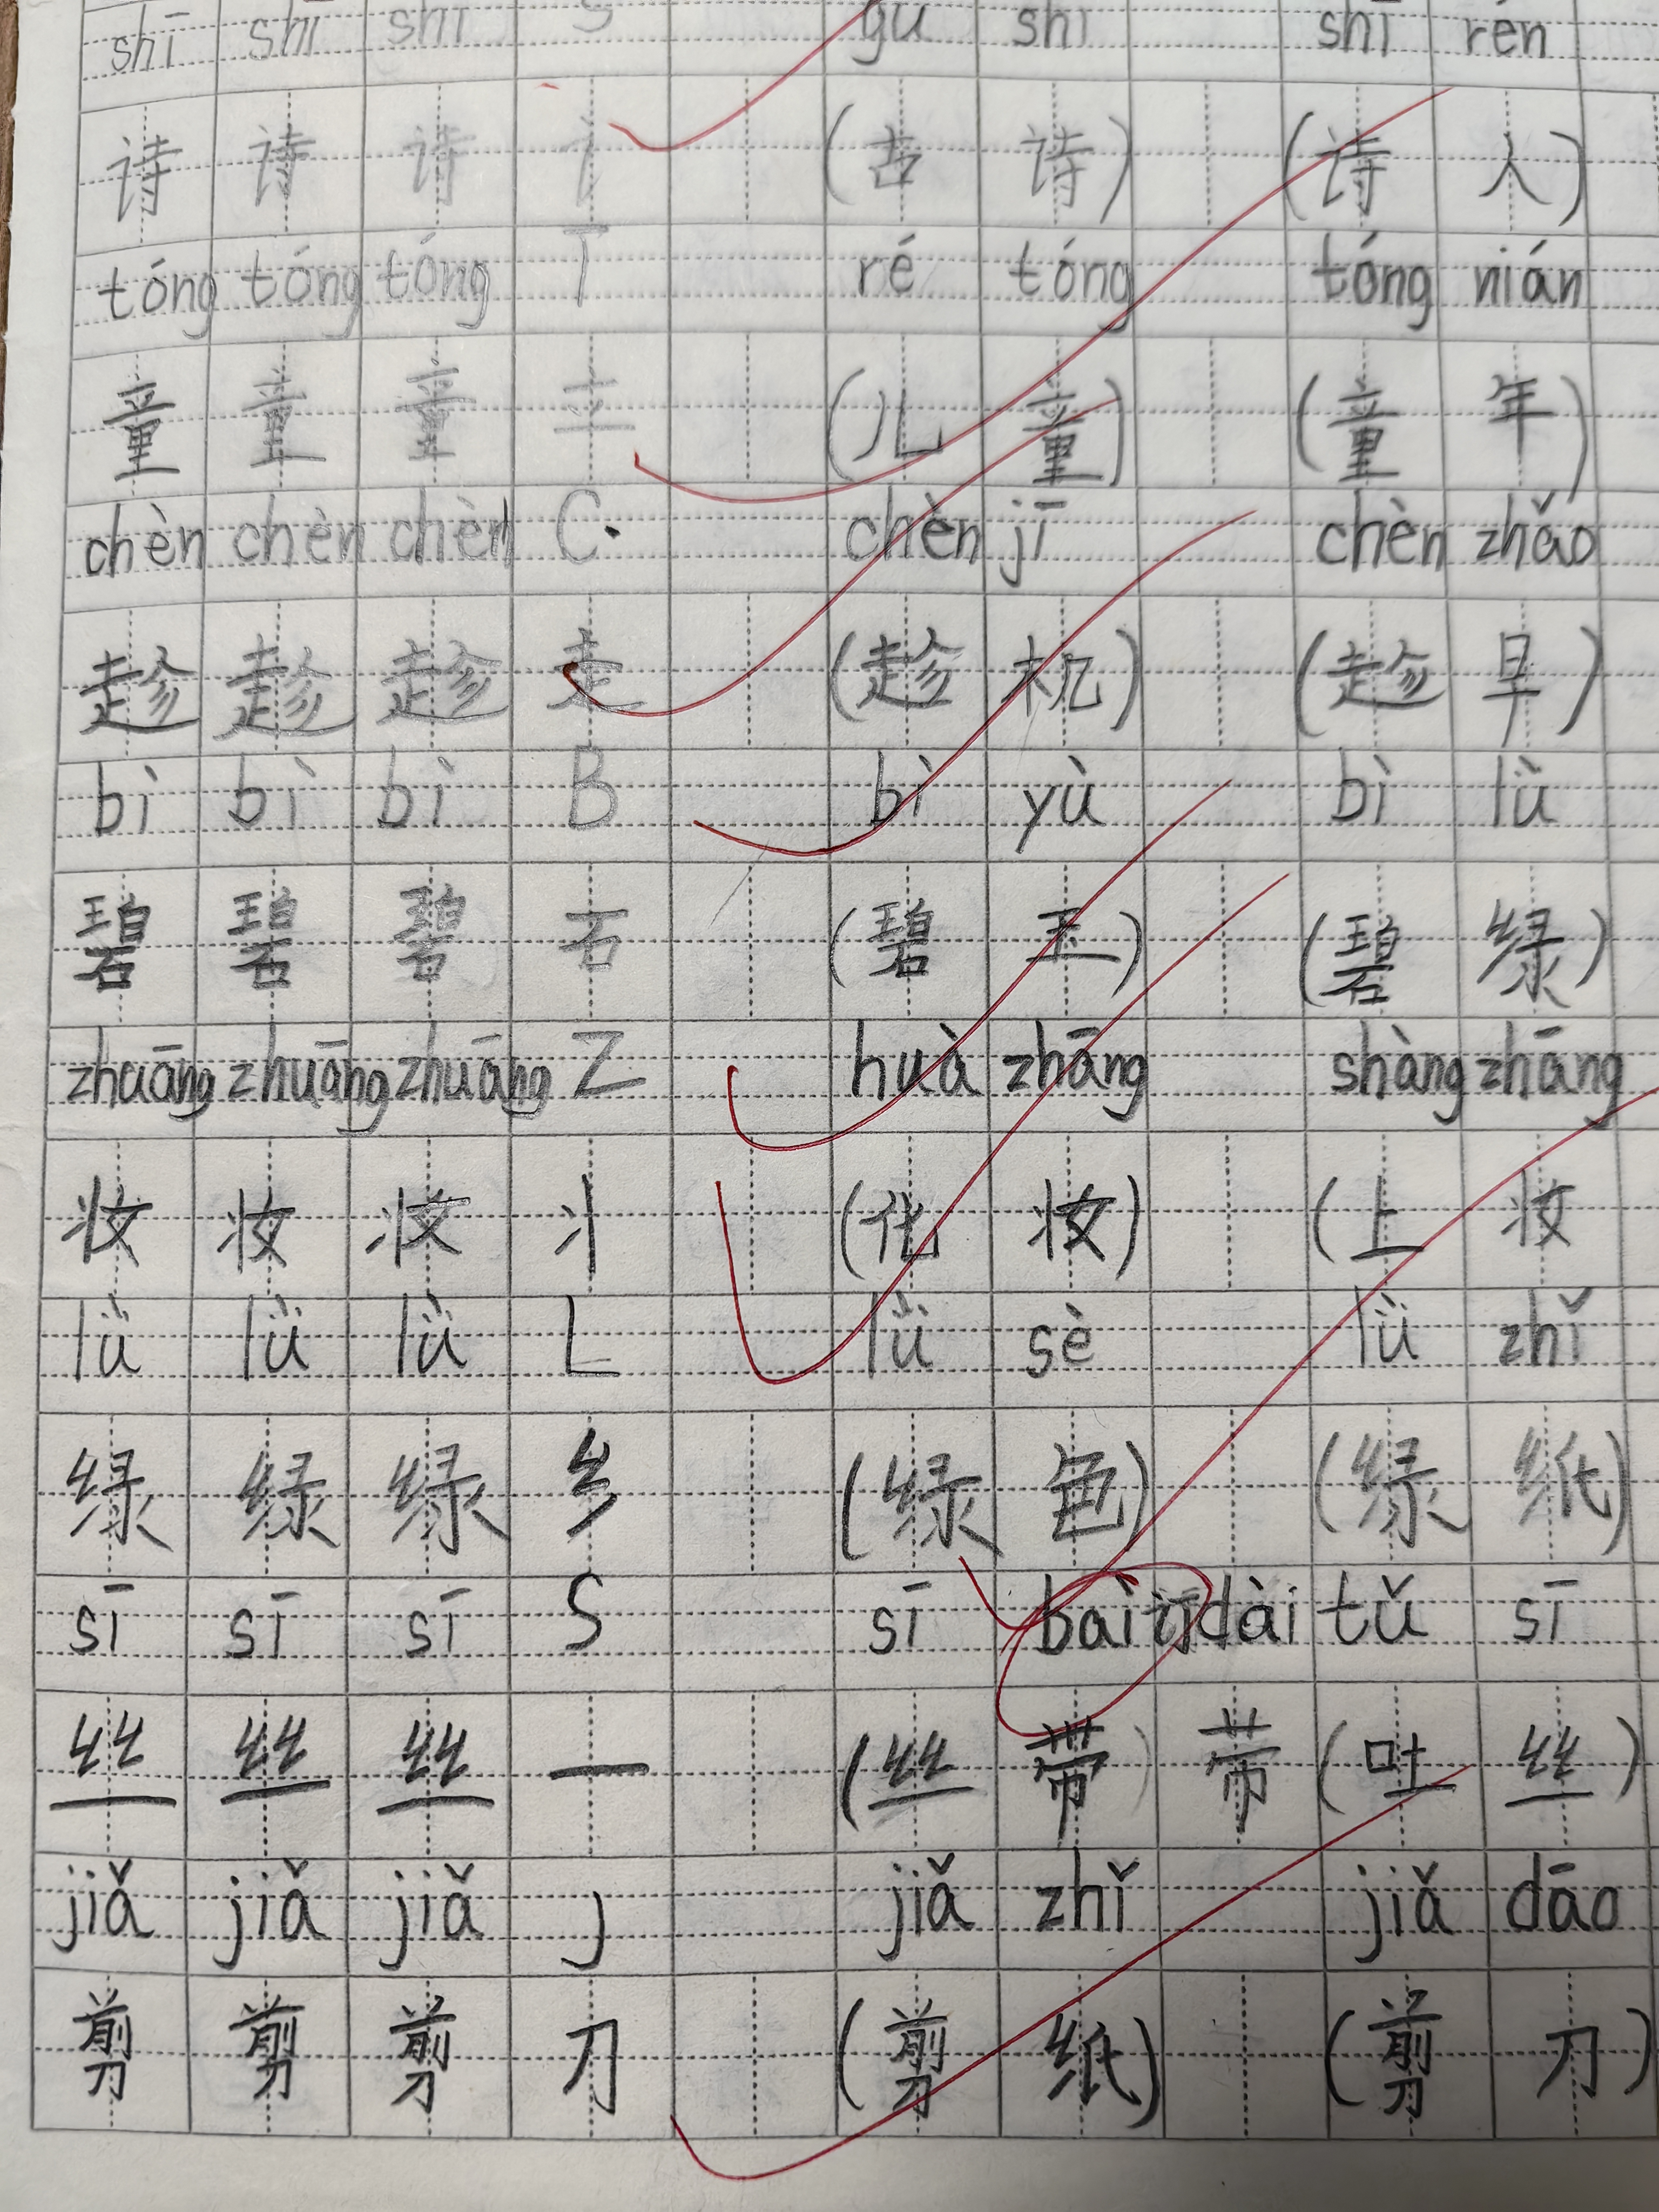 shī shī shī S gǔ shī shī rén
诗 诗 诗 讠 (古 诗) (诗 人)
tóng tóng tóng T ré tóng tóng nián
童 童 童 立 (儿 童) (童 年)
chèn chèn chèn C chèn jī chèn zhǎo
趁 趁 趁 走 (趁 机) (趁 早)
bì bì bì B bì yù bì lǜ
碧 碧 碧 石 (碧 玉) (碧 绿)
zhuāng zhuāng zhuāng Z huà zhāng shàng zhāng
妆 妆 妆 丬 (化 妆) (上 妆
lǜ lǜ lǜ L lǜ sè lǜ zhǐ
绿 绿 绿 纟 (绿 色) (绿 纸)
sī sī sī S sī bài dài tǔ sī
丝 丝 丝 一 (丝 带) 带 (吐 丝)
jiǎ jiǎ jiǎ J jiǎ zhǐ jiǎ dāo
剪 剪 剪 刀 (剪 纸) (剪 刀)